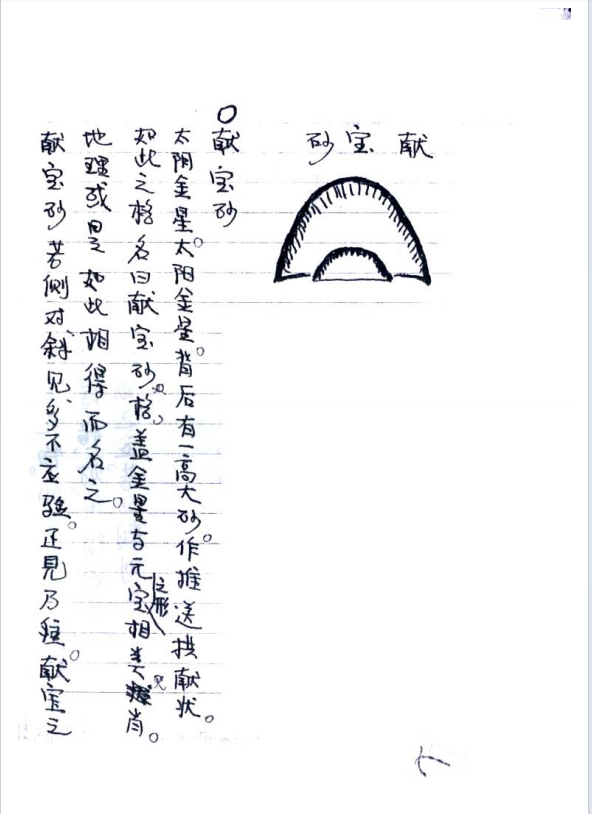 献宝砂
○献宝砂
太阴金星。太阳金星。背后有一高大砂。作推送拱献状。
如此之格名曰献宝砂格。盖金星与元宝之形相类肖。
地理或是如此相得而名之。
献宝砂若侧对斜见多不应验。正見乃。献宝之